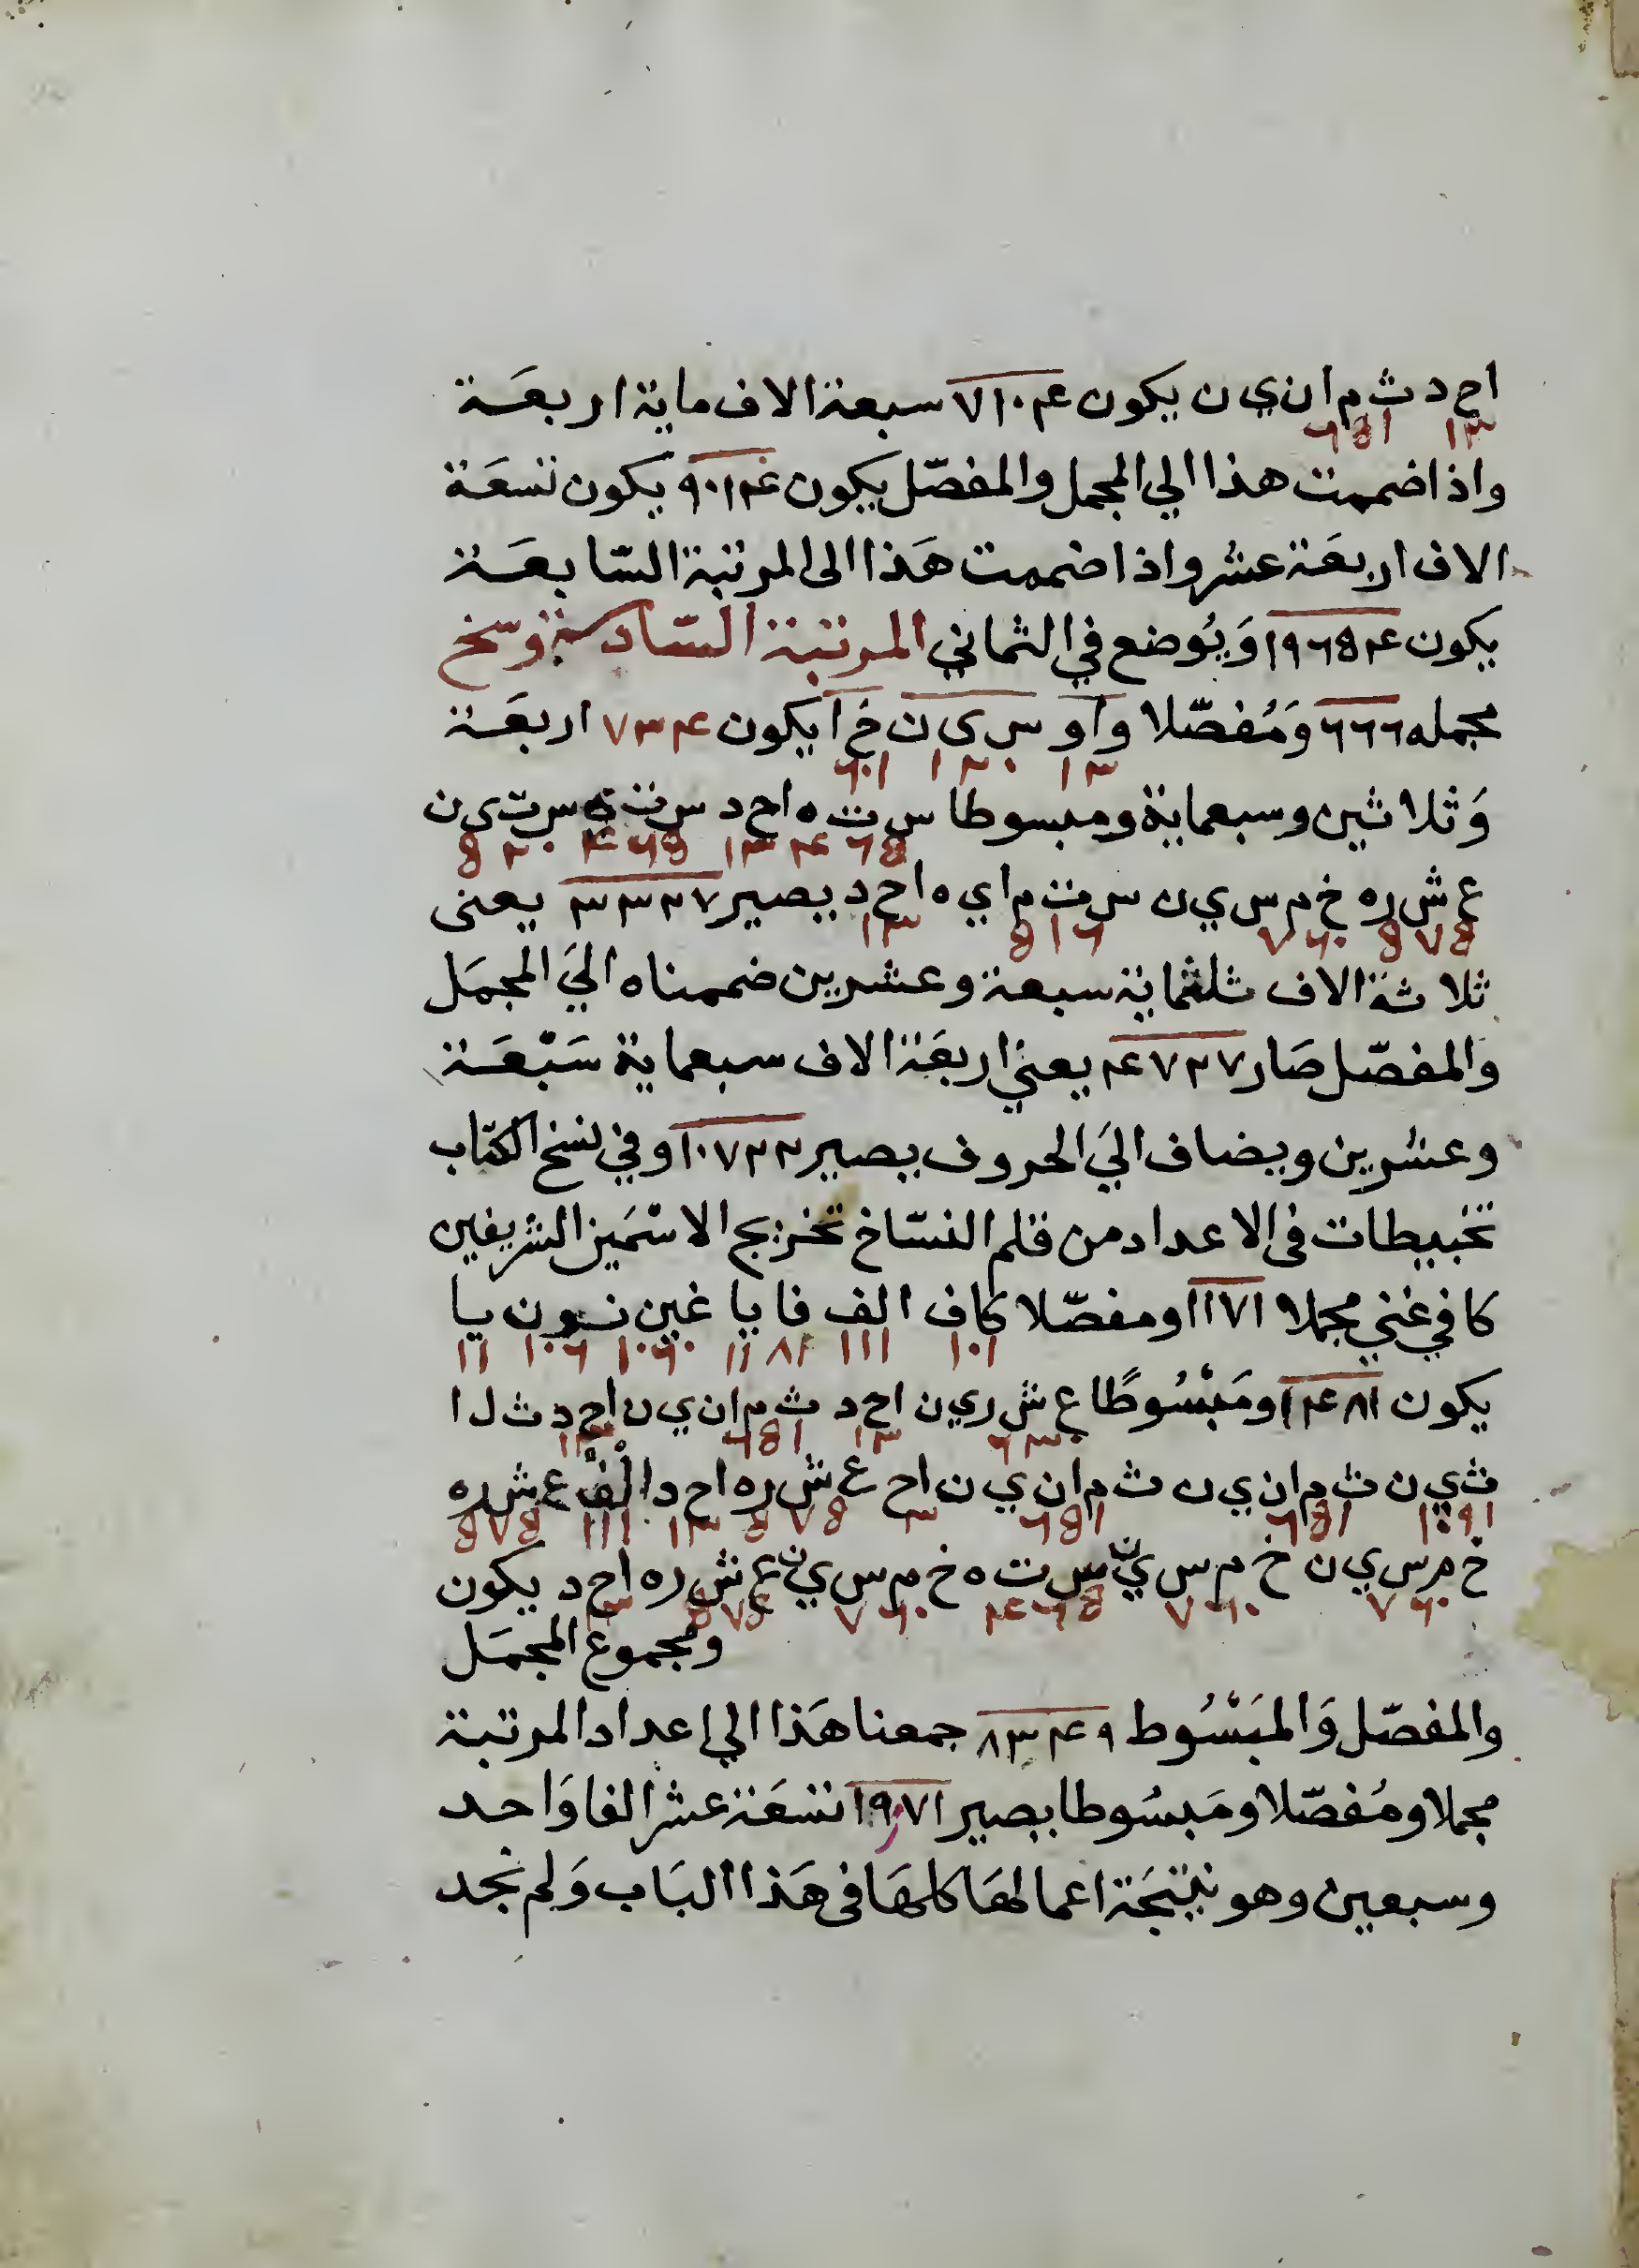 اح د ث م ا ن ي ن يكون ٧١٠٤ سبعة الاف ماية اربعة
١٣ ٦٥١
واذا ضممت هذا الي المجمل والمفصّل يكون ٩٠١٤ يكون تسعة
الاف اربعة عشر واذا ضممت هذا الى المرتبة السّابعة
يكون ١٩٦٥٤ وَيُوضع في الثماني المرتبة السّادسة وسخ
مجمله ٦٦٦ وَمُفصّلا واو س ى ن خ ا يكون ٧٣٤ اربعة
١٣ ١٢٠ ٦٠١
وَثلاثين وسبعماية ومبسوطا س ت ه اح د س ت ه س ت ي ن
٤٦٥ ١٣ ٤٦٥ ٥٢٠
ع ش ر ه خ م س ي ن س ت م ا ي ه اح د يصير ٣٣٢٧ يعنى
٥٧٥ ٧٦٠ ٥١٦ ١٣
ثلاثة الاف ثلثماية سبعة وعشرين ضممناه اليَ المجمَل
والمفصّل صَار ٤٧٢٧ يعني اربعَة الاف سبعماية سَبْعَة
وعشرين ويضاف اليَ الحروف يصير ١٠٧٢٢ وفي نسخ الكتاب
تخبيطات فى الاعداد من قلم النسّاخ تخريج الاسْمَين الشريفين
كافي غني مجملا ١١٧١ ومفصّلا كاف الف فا يا غين نون يا
١٠١ ١١١ ٨١ ١١ ١٠٦٠ ١٠٦ ١١
يكون ١٤٨١ ومَبْسُوطًا ع ش ر ي ن اح د ث م ا ن ي ن اح د ث ل ا
٦٣٠ ١٣ ٦٥١ ١٣
ث ي ن ث م ا ن ي ن ث م ا ن ي ن اح ع ش ر ه اح د الْفْ ع ش ر ه
١٠٩١ ٦٥١ ٦٥١ ٣ ٥٧٥ ١٣ ١١١ ٥٧٥
خ م س ي ن خ م س ي ن س ت ه خ م س ي ن ع ش ر ه اح د يكون
٧٦٠ ٧٦٠ ٤٦٥ ٧٦٠ ٥٧٥ ١٣
ومجموع المجمَل
والمفصّل وَالمبَسْوُط ٨٣٤٩ جمعنا هَذا الي اعداد المرتبة
مجملا ومُفصّلا ومَبسُوطا يصير ١٩٧١ تسعَة عشر الفا وَاحد
وسبعين وهو نتيجَة اعمالهَا كلهَا فى هَذا البَاب وَلم نجد